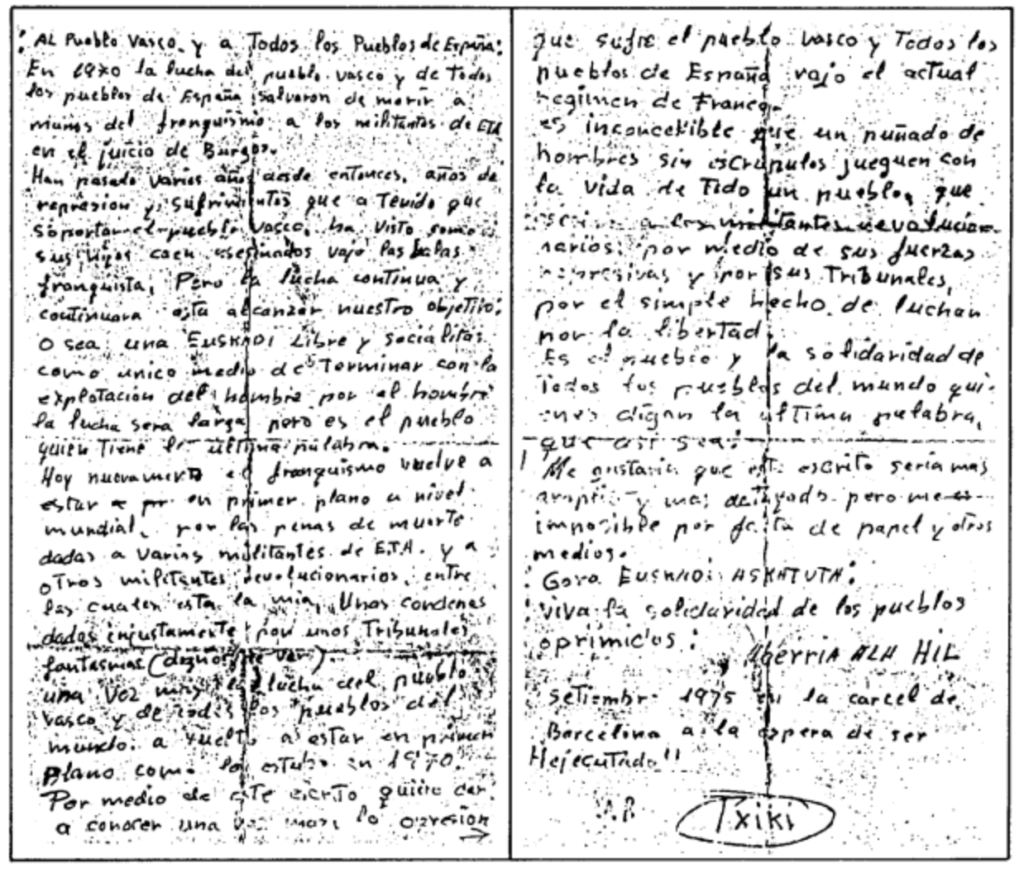 : AL Pueblo Vasco y a Todos los Pueblos de España:
En 1970 la lucha del pueblo vasco y de Todos
los pueblos de España salvaron de morir a
manos del franquismo a los militantes de ETA
en el juicio de Burgos.
Han pasado varios años desde entonces, años de
represion y sufrimientos que a Tenido que
soportar el pueblo vasco, ha visto como
sus hijos caen asesinados vajo las balas
franquista, Pero la lucha continua y
continuara asta alcanzar nuestro objetivo:
O sea una EUSKADI Libre y socialitas
como unico medio de Terminar con la
explotación del hombre por el hombre
la lucha sera larga pero es el pueblo
quien Tiene la ultima palabra.
Hoy nuevamente el franquismo vuelve a
estar en primer plano a nivel
mundial, por las penas de muerte
dadas a varios militantes de E.T.A. y a
otros militantes revolucionarios, entre
las cuales esta la mia, Unas condenas
dadas injustamente por unos Tribunales
fantasmas (dignos de ver)
una vez mas la lucha del pueblo
vasco y de todos los pueblos del
mundo a vuelto a estar en primer
plano como lo estubo en 1970.
Por medio de este escrito quiero dar
a conocer una vez mas, la opresión
que sufre el pueblo vasco y Todos los
pueblos de España vajo el actual
regimen de Franco.
es inconcebible que un puñado de
hombres sin escrupulos jueguen con
la vida de Todo un pueblo, que
a los militantes revolucio-
narios, por medio de sus fuerzas
represivas y por sus Tribunales,
por el simple hecho de luchan
por la libertad.
Es el pueblo y la solidaridad de
Todos los pueblos del mundo qui-
enes digan la ultima palabra,
que asi sea!
Me gustaria que este escrito seria mas
amplio y mas detayado pero me es
imposible por falta de papel y otros
medios.
Gora EUSKADI ASKATUTA:
viva la solidaridad de los pueblos
oprimidos:
Aberria ALA HIL
Setiembre 1975 en la carcel de
Barcelona a la espera de ser
Hejecutado!!
Txiki